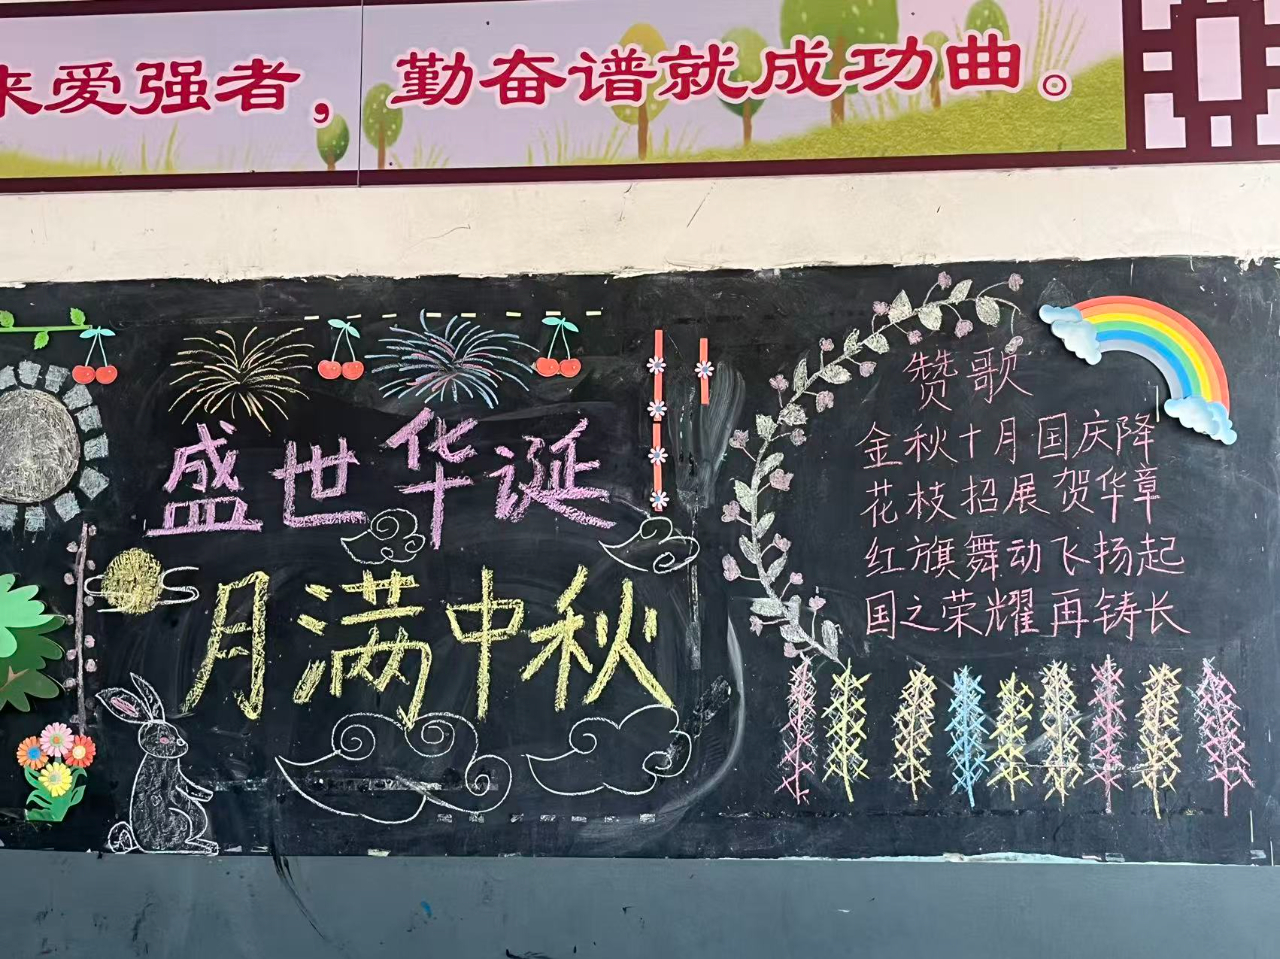 来爱强者，勤奋谱就成功曲。
盛世华诞
月满中秋
赞歌
金秋十月国庆降
花枝招展贺华章
红旗舞动飞扬起
国之荣耀再铸长